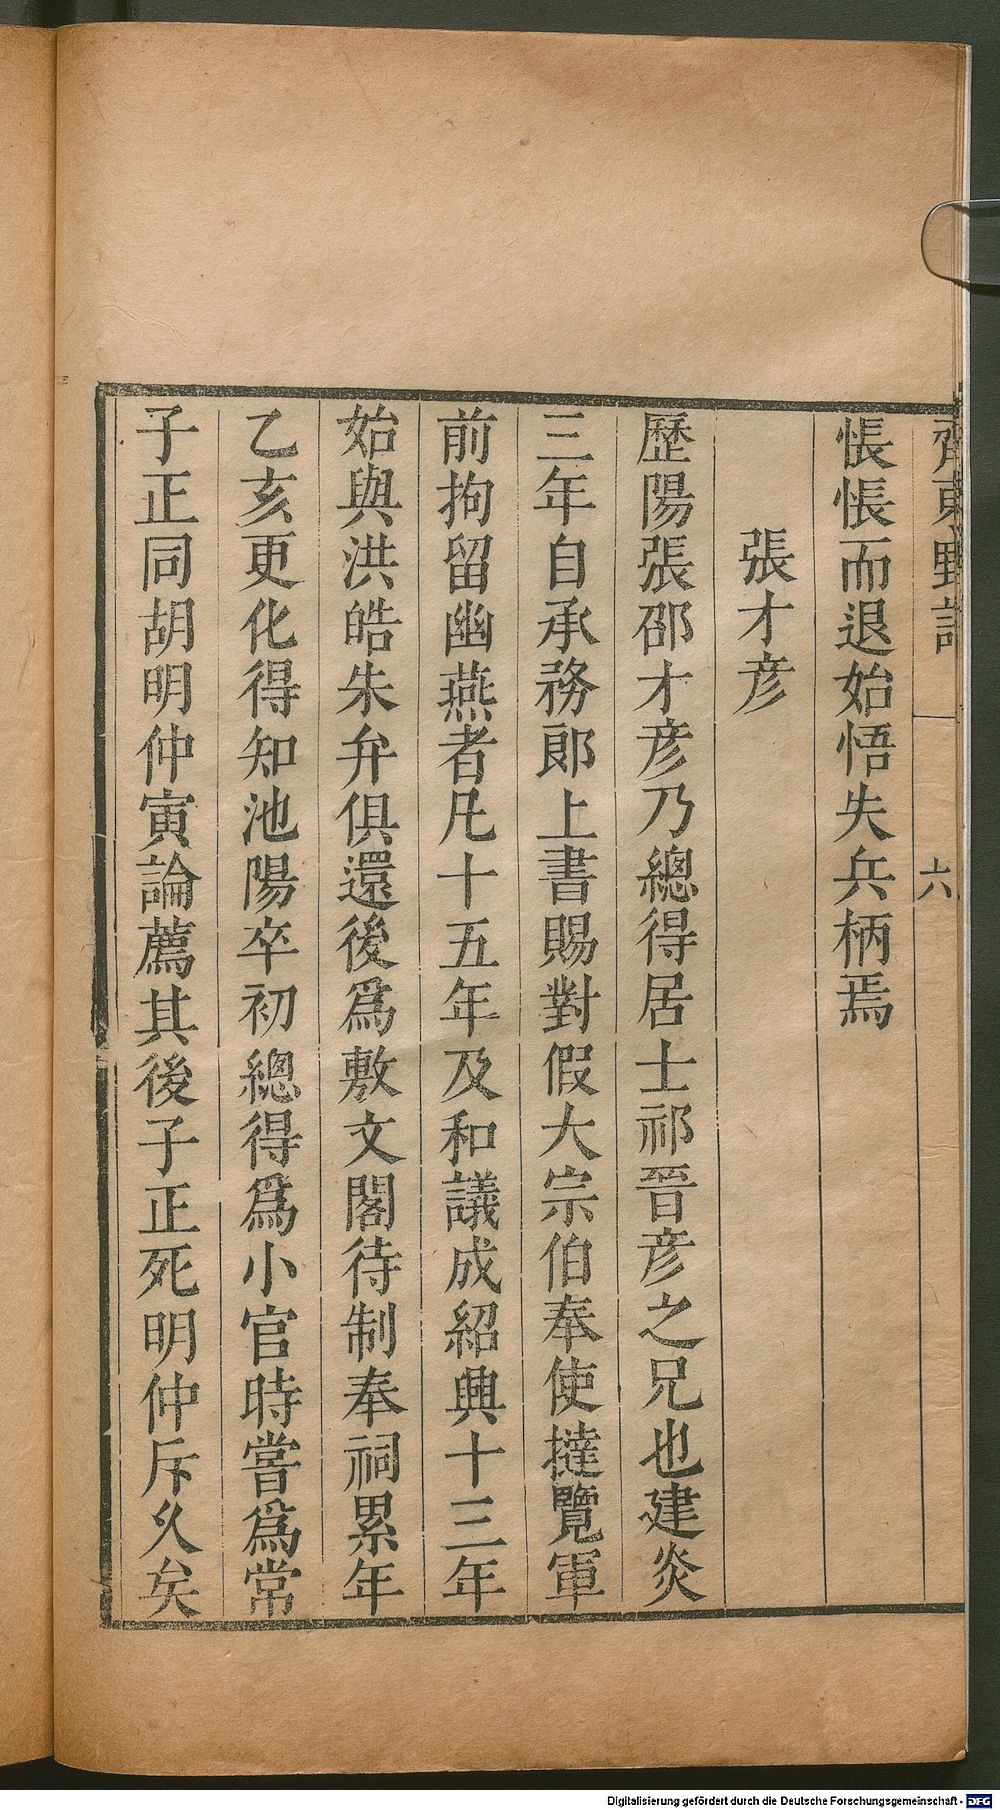 齊東野語
六
悵悵而退始悟失兵柄焉
張才彥
歷陽張邵才彥乃總得居士祁晉彥之兄也建炎
三年自承務郎上書賜對假大宗伯奉使撻覽軍
前拘留幽燕者凡十五年及和議成紹興十三年
始與洪皓朱弁俱還後爲敷文閣待制奉祠累年
乙亥更化得知池陽卒初總得爲小官時嘗爲常
子正同胡明仲寅論薦其後子正死明仲斥久矣
Digitalisierung gefördert durch die Deutsche Forschungsgemeinschaft - DFG